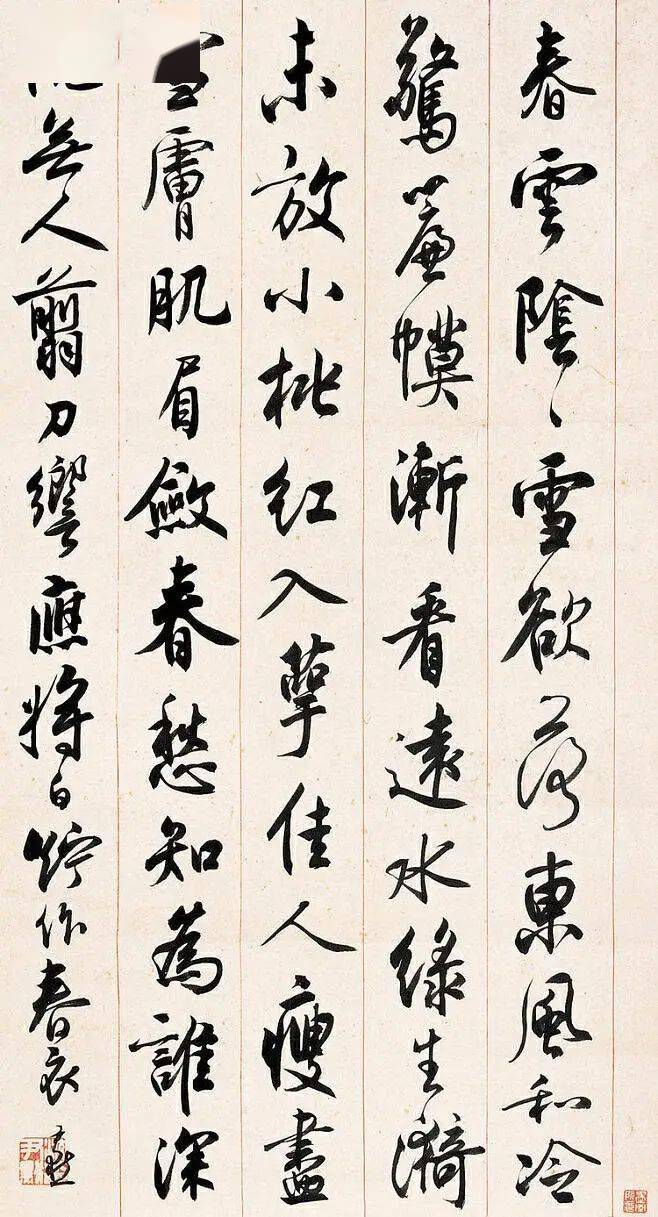 春雲陰〻雪欲落東風和冷
驚簾幙漸看遠水綠生漪
未放小桃紅入萼佳人瘦盡
雪膚肌眉斂春愁知為誰深
無人翦刀響應將白紵作春衣